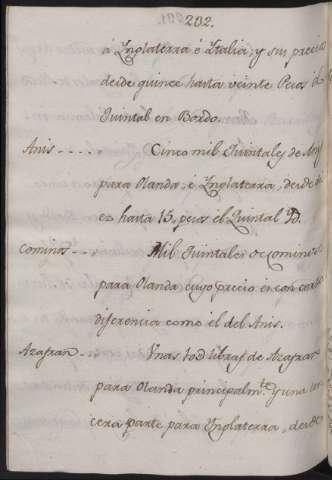 202.
á Ynglaterra é Ytalia, y su precio
desde quince hasta veinte Pesos el
Quintàl en Bordo.
Anis - - - - - Cinco mil Quintales de Anis
para Olanda, é Ynglaterra, desde
es hasta 15. pesos el Quintal
Cominos - - - Mil Quintales de Comino
para Olanda cuyo precio es con corta
diferencia como el del Anis.
Azafran - - Unas libras de Azafran
para Olanda principalmte. y una ter-
cera parte para Ynglaterra, desde